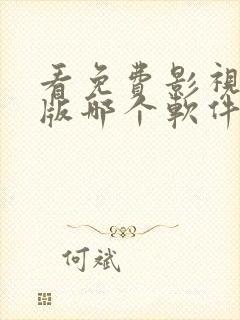 看免費影視
版哪个軟件
何斌